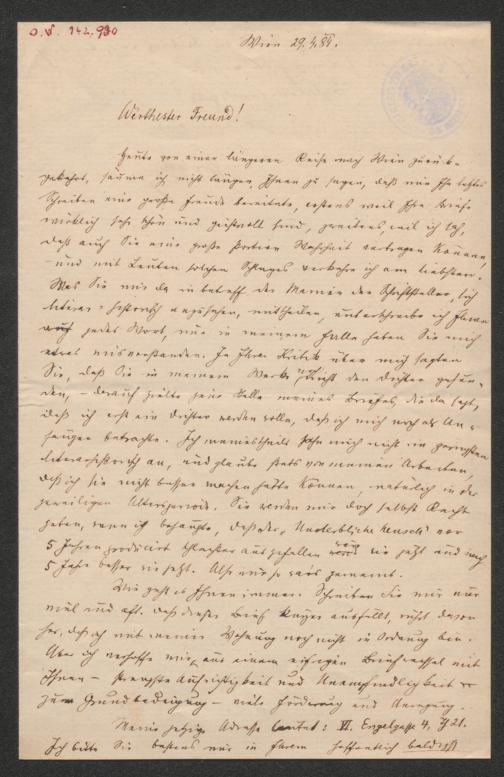 O. N. 142.980
Wien 29.4.8
Werthester Freund!
Heute von einer längeren Reise nach Wien zurück-
gekehrt, säume ich nicht länger, Ihnen zu sagen, daß mir Ihr letztes
Schreiben eine große Freude bereitete, erstens weil Ihre Briefe
wirklich sehr schön und geistvoll sind, zweitens, weil ich sah,
daß auch Sie eine große Portion Wahrheit vertragen können,
und mit Leuten solchen Schlages verkehre ich am liebsten.
Was Sie mir da in betreff der Manier der Schriftsteller, sich
literar-historisch anzusehen, mittheilen, unterschreibe ich Ihnen
auf jedes Wort, nur in meinem Falle haben Sie mich
etwas missverstanden. In Ihrer Kritik über mich sagten
Sie, daß Sie in meinem Werke "nicht den Dichter gefun-
den, – darauf zielte jene Stelle meines Briefes, die da sagt,
daß ich erst ein Dichter werden wolle, daß ich mich noch als An-
fänger betrachte. Ich meinestheils sehe mich nicht im geringsten
literarhistorisch an, und glaube stets von meinen Arbeiten,
daß ich sie nicht besser machen hätte können, natürlich in der
jeweiligen Altersperiode. Sie werden mir doch selbst Recht
geben, wenn ich behaupte, daß der „Unsterbliche Mensch" vor
5 Jahren producirt schlechter ausgefallen wäre wie jetzt und nach
5 Jahr besser wie jetzt. Also nur so war's gemeint.
Wie geht es Ihnen immer. Schreiben Sie mir nur
viel und oft. Daß dieser Brief kurz ausfällt, rührt davon
her, daß ich mit meiner Wohnung noch nicht in Ordnung bin.
Aber ich verhoffe mir aus einem eifrigen Briefwechsel mit
Ihnen – strengste Aufrichtigkeit und Unempfindlichkeit
zur Grundbedingung – viele Förderung und Anregung.
Meine jetzige Adresse lautet: VI. Enzelgasse 4, 21.
Ich bitte Sie bestens mir in Ihrem hoffentlich baldigst